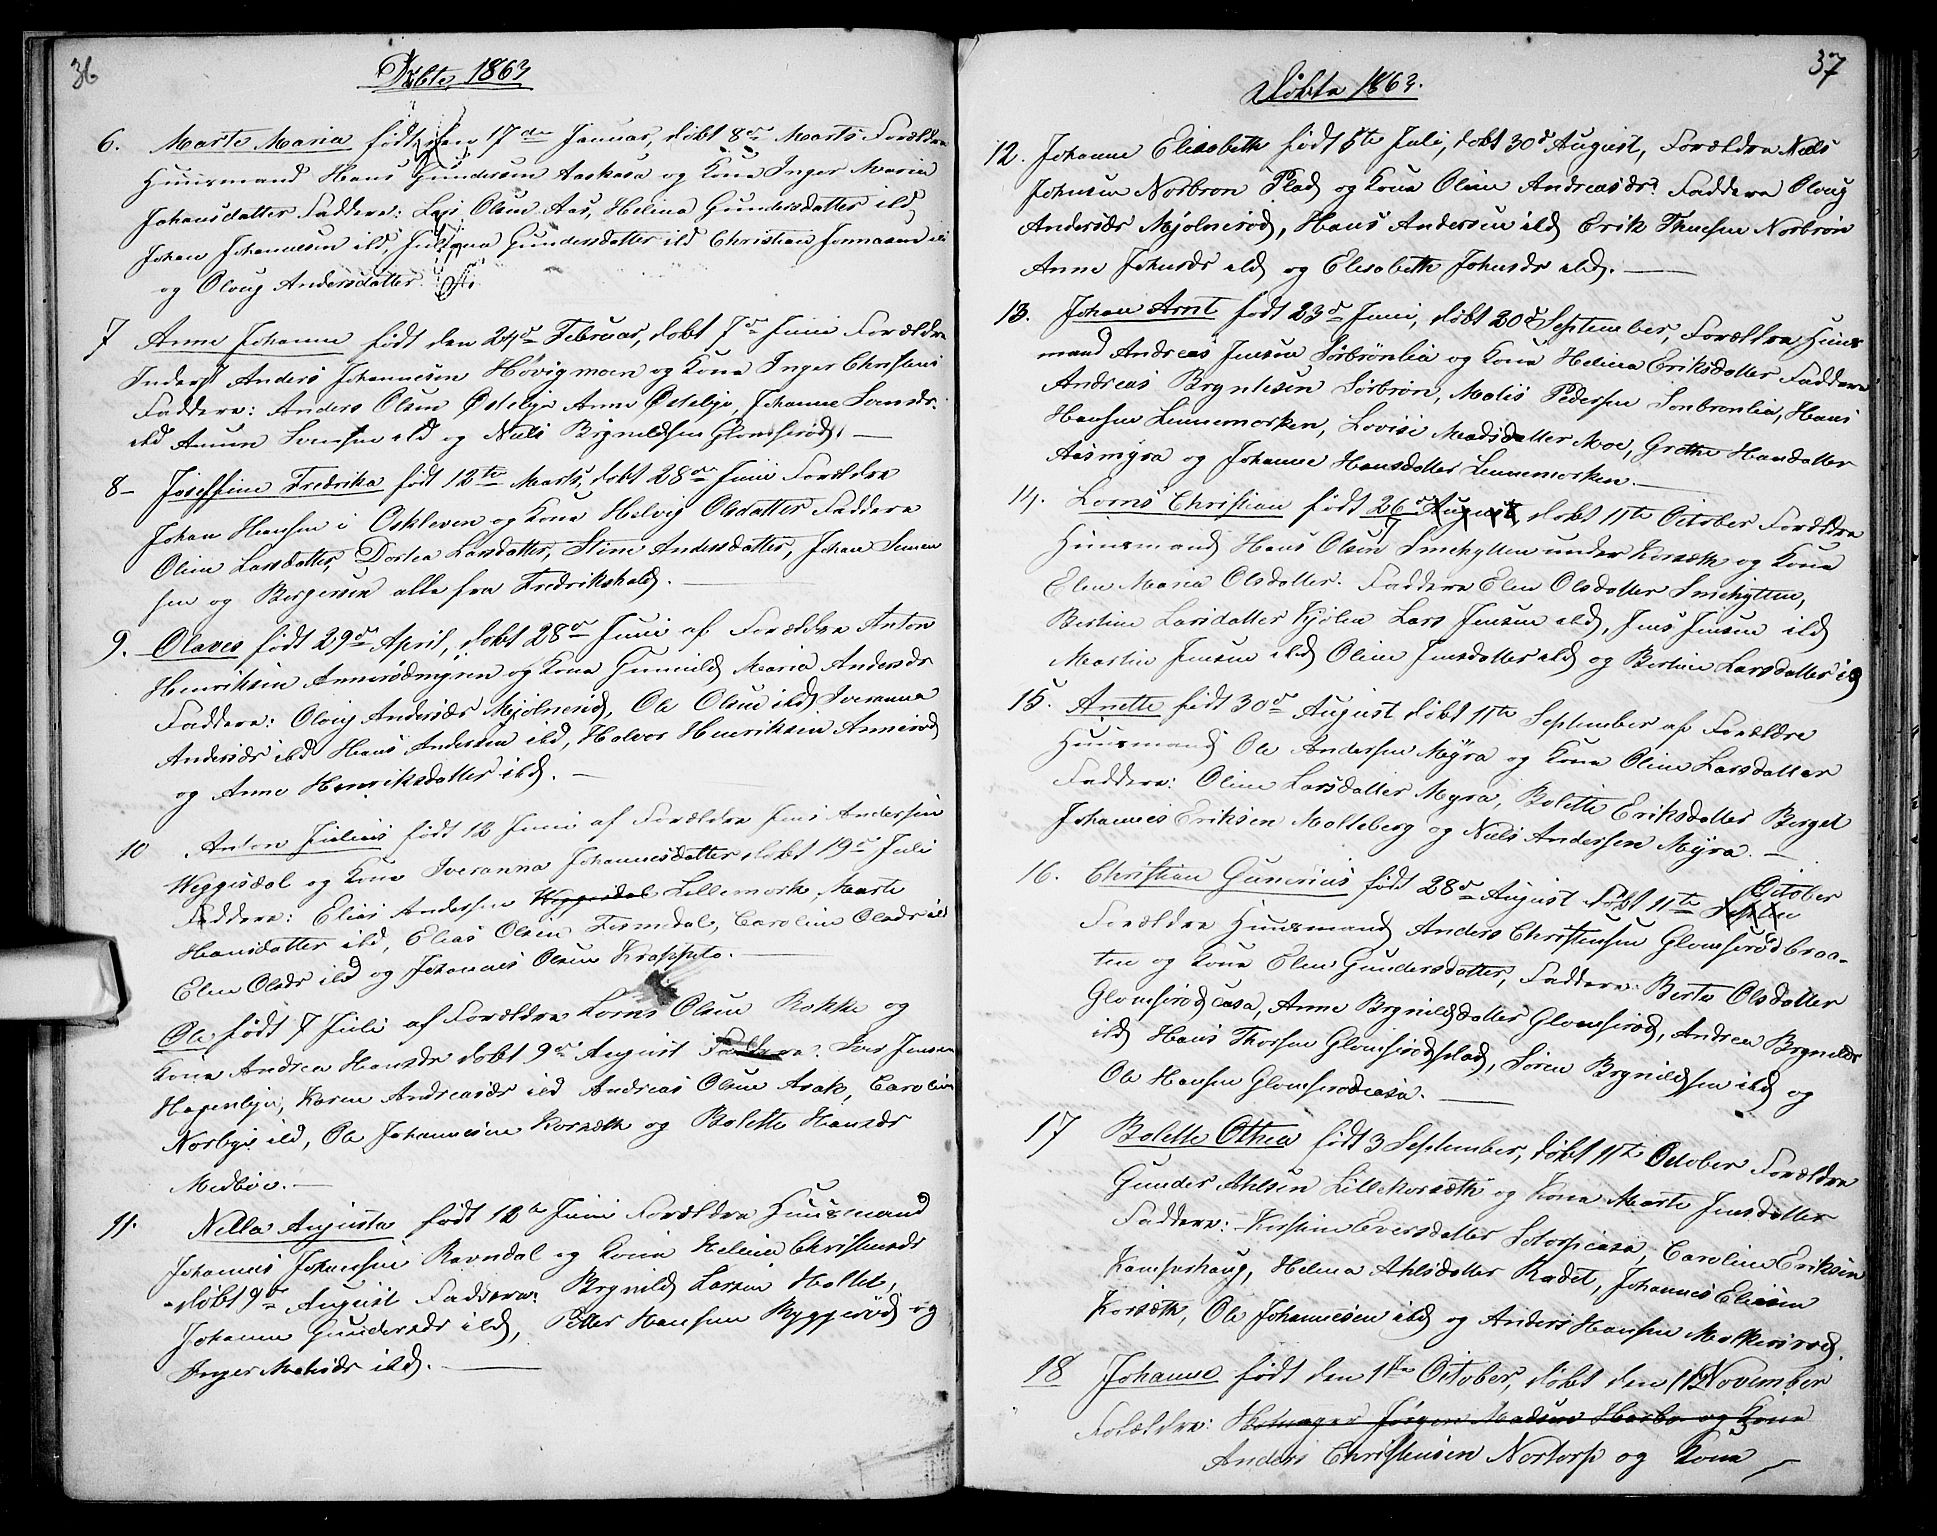 36
Døbte, 1863
6. Marte Maria født den 17de Januar, døbt 8de Marts Forældre
Huusmand Hans Gundersen Aaskasa og Kone Inger Maria
Johansdatter Faddere: Lars Olsen Aas, Helene Gundersdatter ibd
Johan Johannesen ibd, Juliana Gundersdatter ibd Christian Jonnasen ibd
og Oloug Andersdatter
7 Anne Johanne født den 24de Februar, døbt 7de Juni Forældre
Inderst Anders Johannesen Høvigmoen og Kone Inger Christens
Faddere: Anders Olsen Østebye Anne Østebye, Johanne Svensdr.
ibd Svensen ibd og Niels Brynildsen Glomserød. —
8 – Josephine Fredrika født 12te Marts, døbt 28de Juni Forældre
Johan Hansen i Oskleven og Kone Helvig Olsdatter Faddere
Oline Larsdatter, Dortea Larsdatter, Stine Andersdatter, Johan Simen
sen og Bergersen alle fra Fredrikshald. —
9. Olaves født 29de April, døbt 28de Juni af Forældre Anton
Henriksen Annerødmyren og Kone Gunnild Maria Andersdr
Faddere: Oloug Andersdr Mjølnerød, Ole Olsen ibd Iveranna
Andersdr ibd Hans Andersen ibd, Halvor Henriksen Annerød
og Anne Henriksdatter ibd. —
10 Anton Julius født 12 Juni af Forældre Jens Andersen
Weggisdal og Kone Iveranna Johannesdatter døbt 19de Juli
Faddere: Elias Andersen Weggesdal Lillemork, Marte
Hansdatter ibd, Elias Olsen Tismedal, Caroline Olsdr ibd
Elen Olsdr ibd og Johannes Olsen Krappeto. —
Ole født 7 Juli af Forældre Lorns Olsen Bakke og
Kone Andrea Hansdr døbt 9de August Faddere: Iver Jensen
Hagenbye, Karen Andreasdr ibd Andreas Olsen Asak, Caroline
Norbye ibd, Ole Johannesen Korsæth og Bolette Hansdr
Medbøe. —
11. Nella Augusta født 12te Juni Forældre Huusmand
Johannes Johansen Ravndal og Kone Helene Christensdr
døbt 9de August Faddere: Brynild Larsen Holtet,
Johanne Gundersdr ibd, Petter Hansen Byggerød og
Inger Matisdr ibd. —
37
Døbte 1863.
12. Johanne Elisabeth født 5te Juli, døbt 30d August, Forældre Niels
Johnsen Norbrøn Plad og Kone Oline Andreasdr: Faddere Oloug
Andersdr Mjølnerød, Hans Andersen ibd Erik Thuesen Norbrøn
Anne Johnsdr ibd og Elisabeth Johnsdr ibd. —
13. Johan Arnt født 23de Juni, døbt 20de September, Forældre Huus
mand Andreas Jensen Sørbrønlia og Kone Helene Eriksdatter Faddere
Andreas Bryntesen Sørbrøn, Matis Pedersen Sørbrønlia, Hans
Hansen Lunnemorken, Lovise Madsdatter Moe, Grethe Hansdatter
Aasmyra og Johanne Hansdatter Lunnemorken. —
14. Lorns Christian født 26de August, døbt 11te October Forældre
Huusmand Hans Olsen Smehytten under Korsæth og Kone
Elen Maria Olsdatter. Faddere Elen Olsdatter Smehytten,
Bertine Larsdatter Kjølen Lars Jensen ibd, Jens Jensen ibd
Martin Jensen ibd Oline Jensdatter ibd og Bertine Larsdatter ibd
15. Anette født 30de August døbt 11te September af Forældre
Huusmand Ole Andersen Myra og Kone Oline Larsdatter
Faddere: Oline Larsdatter Myra, Bolette Eriksdatter Berget
Johannes Eriksen Molteberg og Niels Andersen Myra. —
16. Christian Gunerius født 28de August døbt 11te Septem October
Forældre Huusmand Anders Christensen Glomserødbraa-
ten og Kone Elen Gundersdatter, Faddere: Berte Olsdatter
Glomserødcasa, Anne Brynildsdatter Glomserød, Andrea Brynildsdr
ibd Hans Thorsen Glomserødplad, Søren Brynildsen ibd og
Ole Hansen Glomserødcasa. —
17 Bolette Othea født 3 September, døbt 11te October Forældre
Gunder Ahlsen Lillekorsæth og Kone Marte Jensdatter
Faddere: Kirstine Eversdatter Solorpcasa, Caroline Eriksen
Kamperhaug, Helene Ahlsdatter Rødet, Johannes Eliesen
Korsæth, Ole Johannesen ibd og Anders Hansen Mokkersrød
18 Johanne født den 1ste October, døbt den 1 November
Forældre: Jørgen Madsen og Kone
Anders Christensen Nortorp og Kone